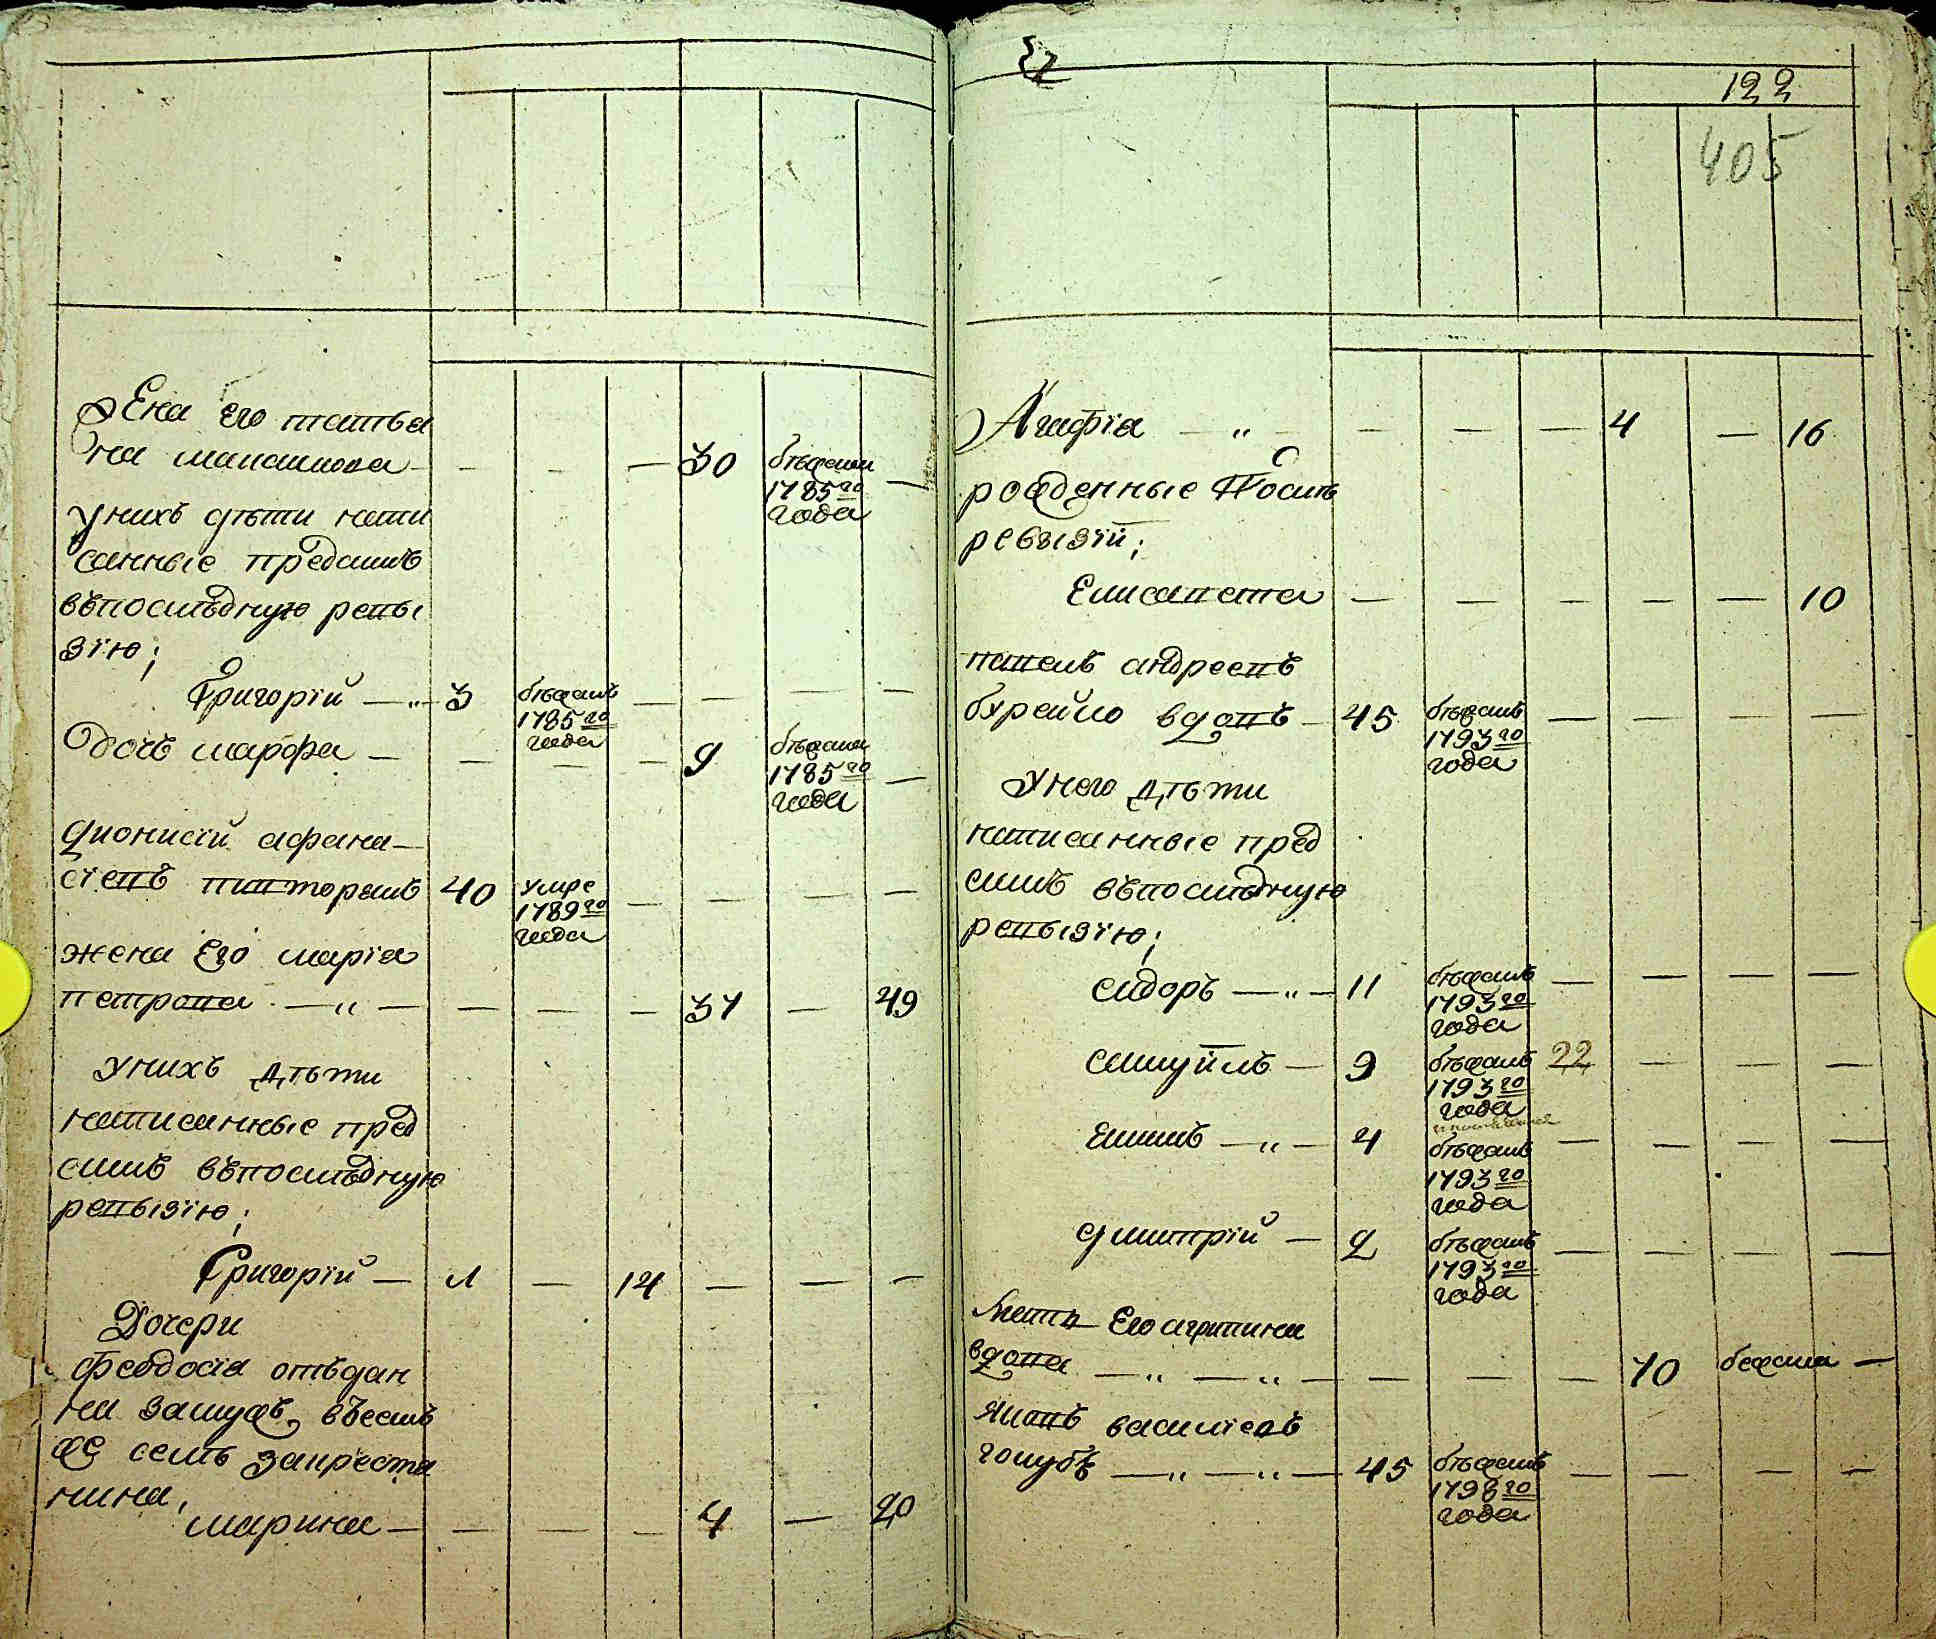 Жена Его татья
на малашкова — — — 30 бѣжали —
1785го
года
у нихъ дѣти напи
санные предъ симъ
въ послѣднюю ревы
зїю;
Григорїй — „ 3 бѣжалъ — — — —
1785го
года
Дочь марфа — — — — 9 бѣжала —
1785го
года
дионисїй афана—
сїевъ 40 умре — — — —
1789го
года
жена Его марїа
петрова — „ — — — — 37 — 49
у нихъ дѣти
написанные пред
симъ въ послѣдную
ревызїю;
Григорїй — 1 — 14 — — —
Дочери
феодосїа отъдан
на замужъ въ семъ
же селѣ за крестя
нина,
марина — — — — 4 — 20
122
405
Агафїа — „ — — — — 4 — 16
рожденные После
ревызїй;
Елисавета — — — — — 10
павелъ андреевъ
бурейло вдовъ — 45 бѣжалъ — — — —
1793го
года
У него дѣти
написанные пред
симъ въ послѣдную
ревызїю;
сидоръ — „ — 11 бѣжалъ — — — —
1793го
года
самуйлъ — 9 бѣжалъ 22 — — —
1793го
года
— „ — 4 бѣжалъ — — — —
1793го
года
димитрїй — 2 бѣжалъ — — — —
1793го
года
Мать Его агрипина
вдова — „ — „ — — — — 70 бежала —
Яковъ василїевъ
голубъ — „ — „ — 45 бѣжалъ — — — —
1793го
года